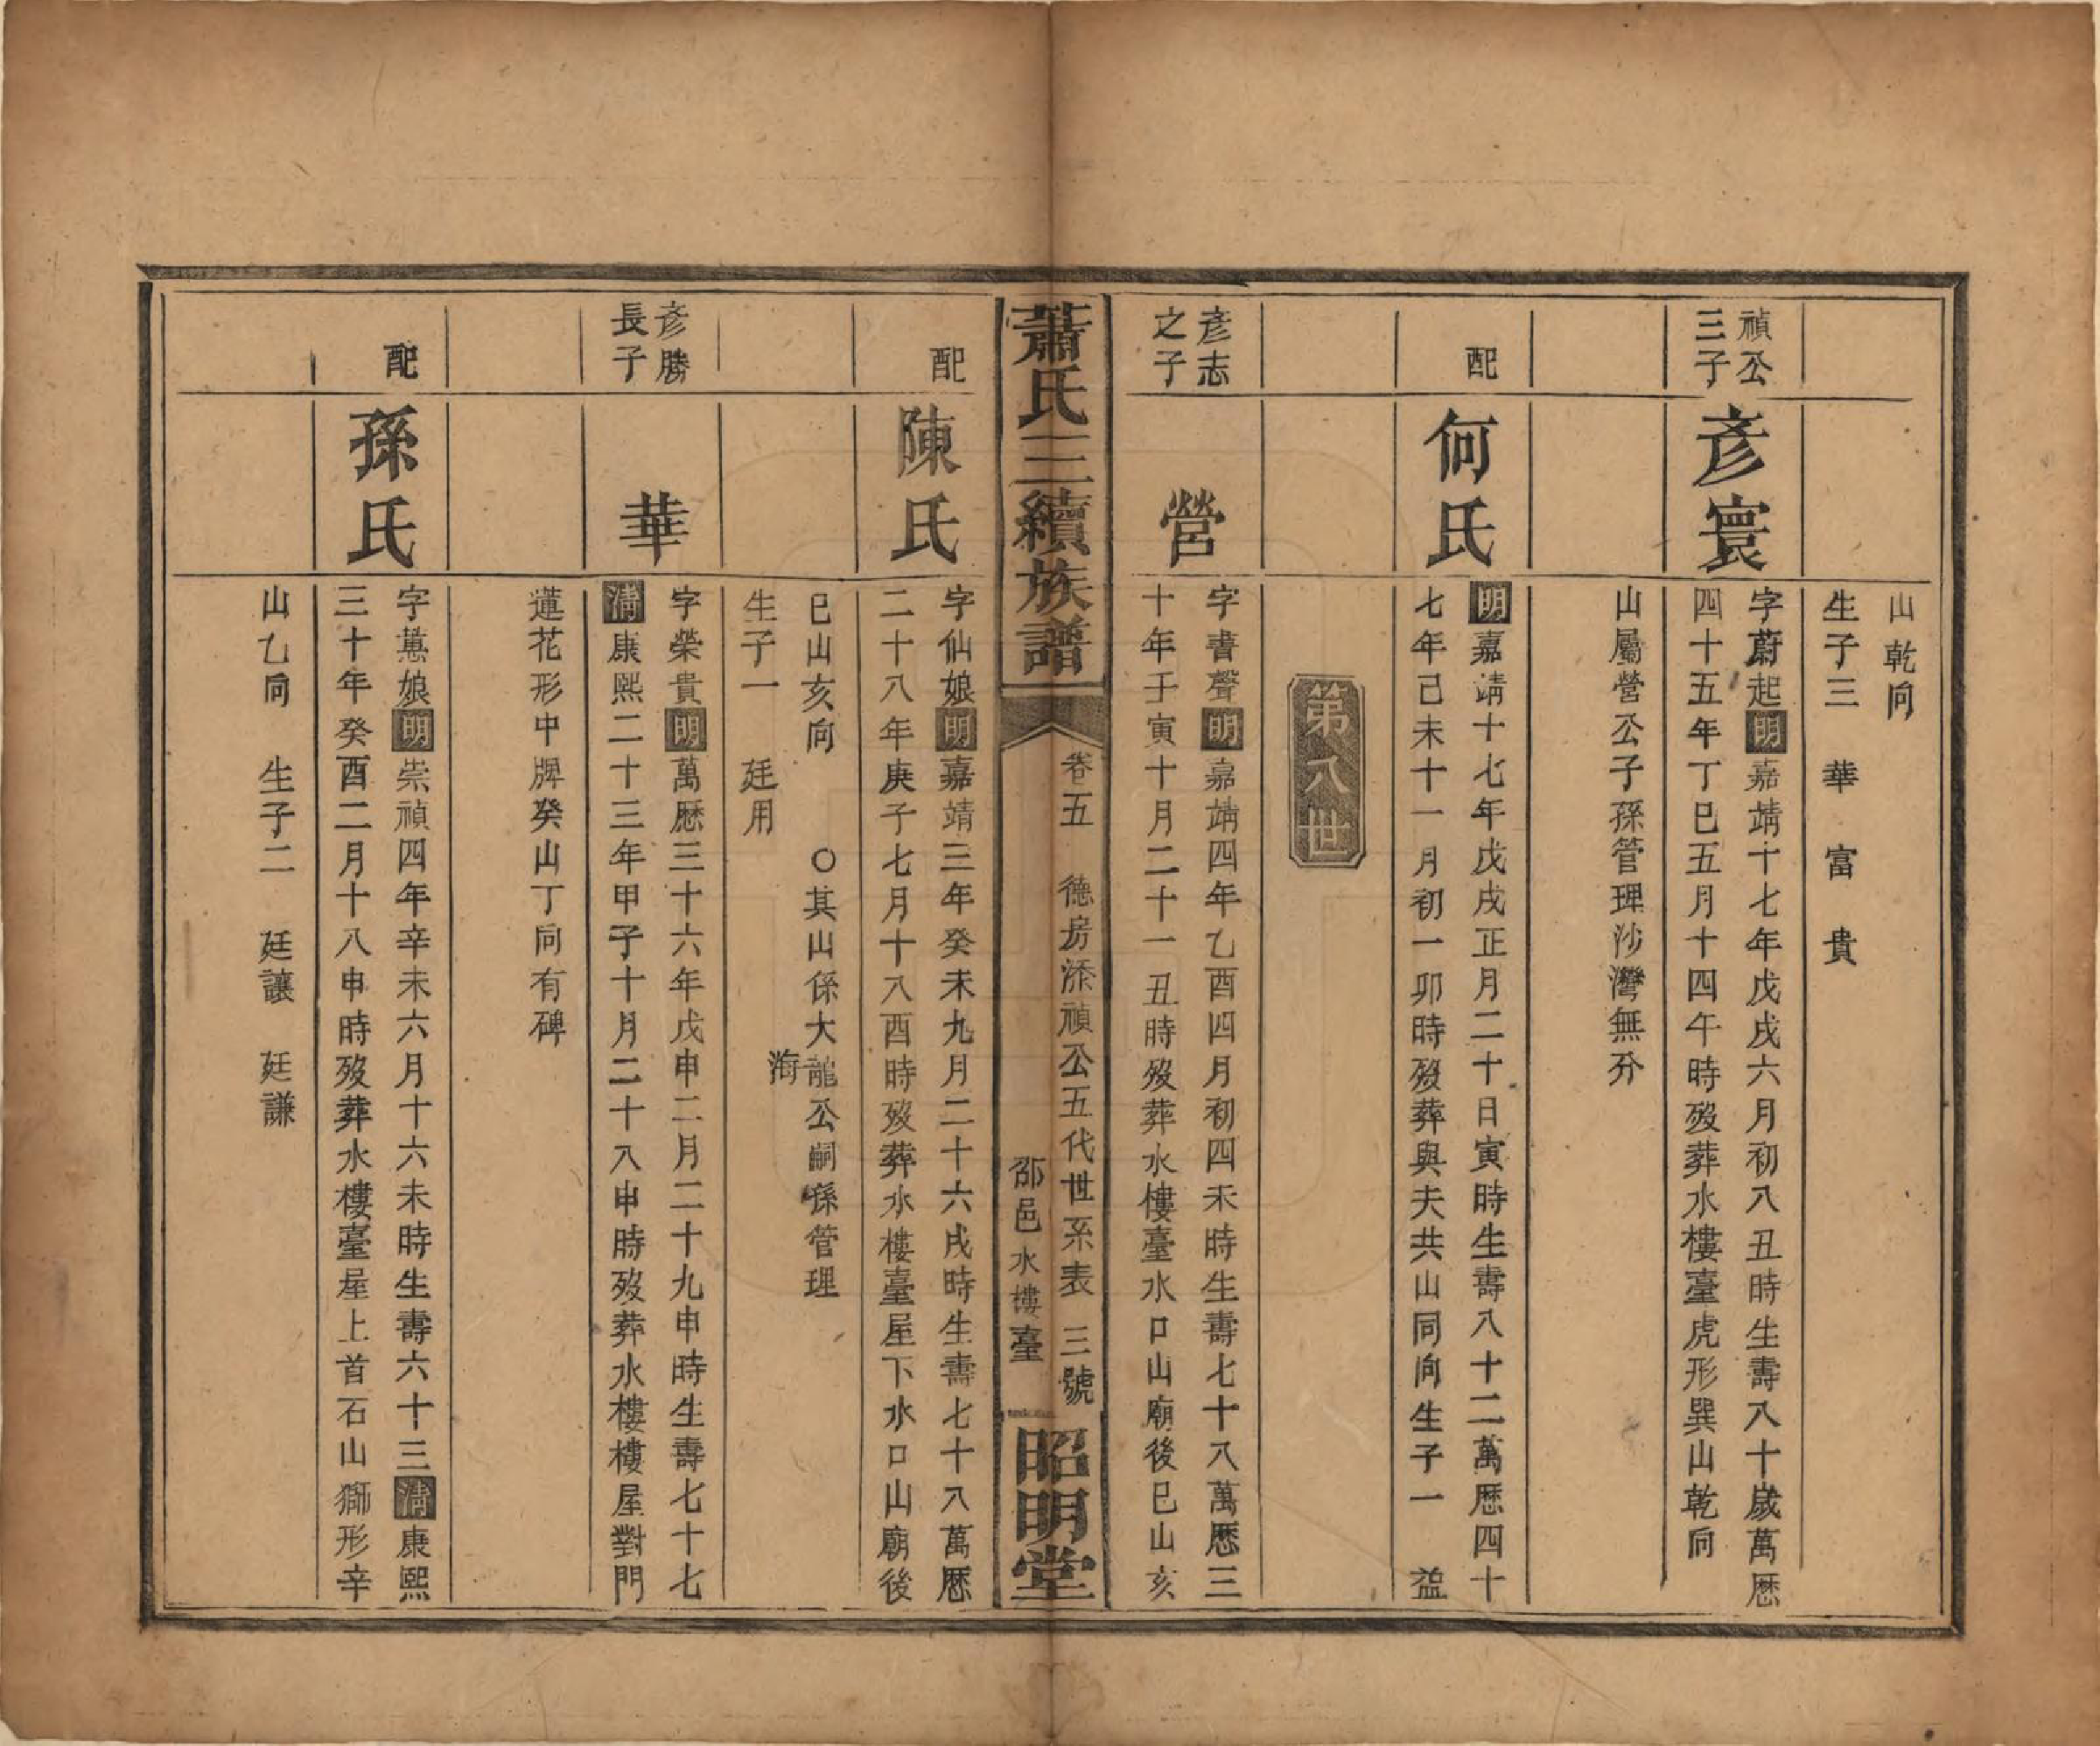 山乾向
生子三　華　富　貴
禎公
三子
彥寰
字蔚起明嘉靖十七年戊戌六月初八丑時生壽八十歲萬歷
四十五年丁巳五月十四午時歿葬水樓臺虎形巽山乾向
山屬營公子孫管理沙灣無分
配
何氏
明嘉靖十七年戊戌正月二十日寅時生壽八十二萬歷四十
七年己未十一月初一卯時歿葬與夫共山同向生子一　益
第八世
彥志
之子
營
字書聲明嘉靖四年乙酉四月初四未時生壽七十八萬歷三
十年壬寅十月二十一丑時歿葬水樓臺水口山廟後巳山亥
蕭氏三續族譜
卷五　德房添禎公五代世系表　三號
邵邑水樓臺
昭明堂
配
陳氏
字仙娘明嘉靖三年癸未九月二十六戌時生壽七十八萬歷
二十八年庚子七月十八酉時歿葬水樓臺屋下水口山廟後
巳山亥向　　〇其山係大龍公嗣孫管理
海
生子一　廷用
彥勝
長子
華
字榮貴明萬歷三十六年戊申二月二十九申時生壽七十七
清康熙二十三年甲子十月二十八申時歿葬水樓樓屋對門
蓮花形中牌癸山丁向有碑
配
孫氏
字蕙娘明崇禎四年辛未六月十六未時生壽六十三清康熙
三十年癸酉二月十八申時歿葬水樓臺屋上首石山獅形辛
山乙向　生子二　廷讓　廷謙